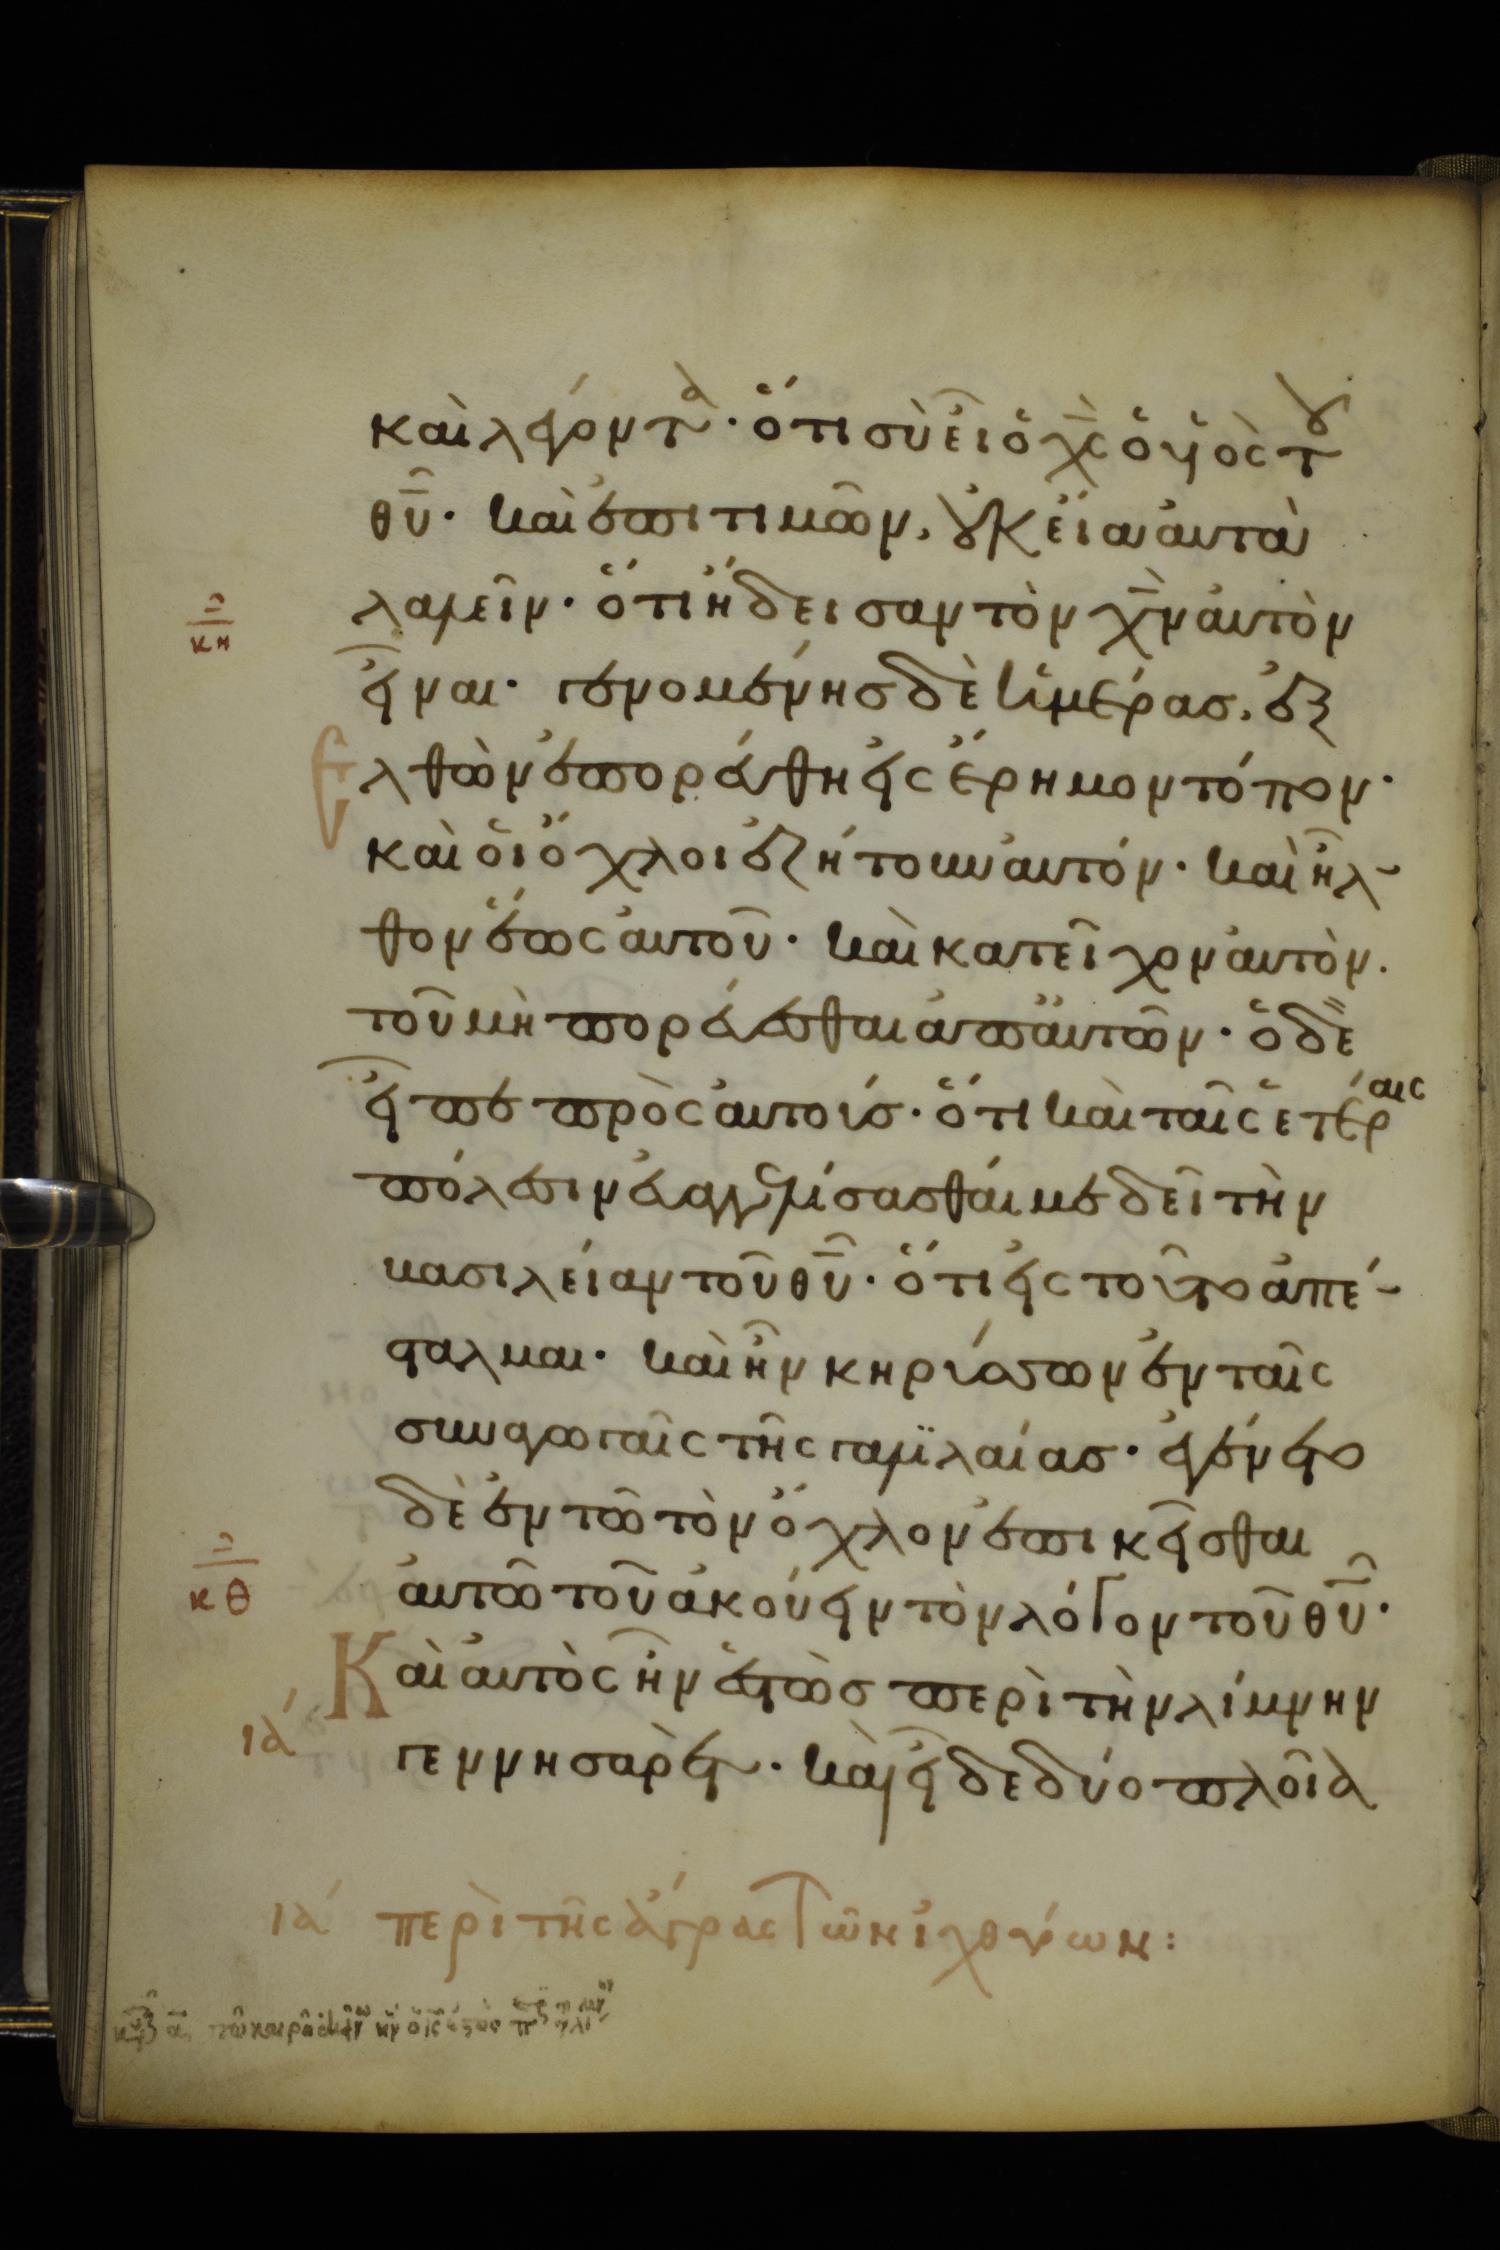 καὶ λέγοντα· ὅτι σὺ εἶ ὁ χς ὁ υἱὸς του
θυ· καὶ ἐπιτιμῶν, οὐκ εἴα αὐτὰ
λαλεῖν· ὅτι ἤδεισαν τὸν χν αὐτὸν
κη
εἶναι· γενομένης δὲ ἡμέρας, ἐξ
ελθὼν ἐπορεύθη εἰς ἔρημον τόπον·
καὶ οἱ ὄχλοι ἐζήτουν αὐτόν· καὶ ἦλ-
θον ἕως αὐτοῦ· καὶ κατεῖχον αὐτὸν.
τοῦ μὴ πορεύεσθαι ἀπ' αὐτῶν· ὁ δὲ
εἶπε πρὸς αὐτούς· ὅτι καὶ ταῖς ἑτέραις
πόλεσιν εὐαγγελίσασθαί με δεῖ τὴν
βασιλείαν τοῦ θυ· ὅτι εἰς τοῦτο ἀπέ-
σταλμαι· καὶ ἦν κηρύσσων ἐν ταῖς
συναγωγαῖς τῆς γαλιλαίας· ἐγένετο
δὲ ἐν τῶ τὸν ὄχλον ἐπικεῖσθαι
αὐτῶ τοῦ ἀκούειν τὸν λόγον τοῦ θυ·
κθ
Καὶ αὐτὸς ἦν ἑστὼς περὶ τὴν λίμνην
ια
γεννησαρέτ· καὶ εἶδε δύο πλοῖα
ια περὶ τῆς ἄγρας τῶν ἰχθύων: